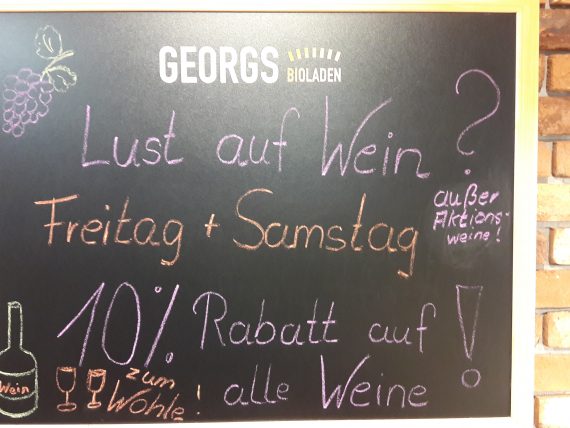 GEORGS BIOLADEN
Lust auf Wein ?
Freitag + Samstag
außer
Aktions-
weine!
10% Rabatt auf
alle Weine !
Wein
zum
Wohle!